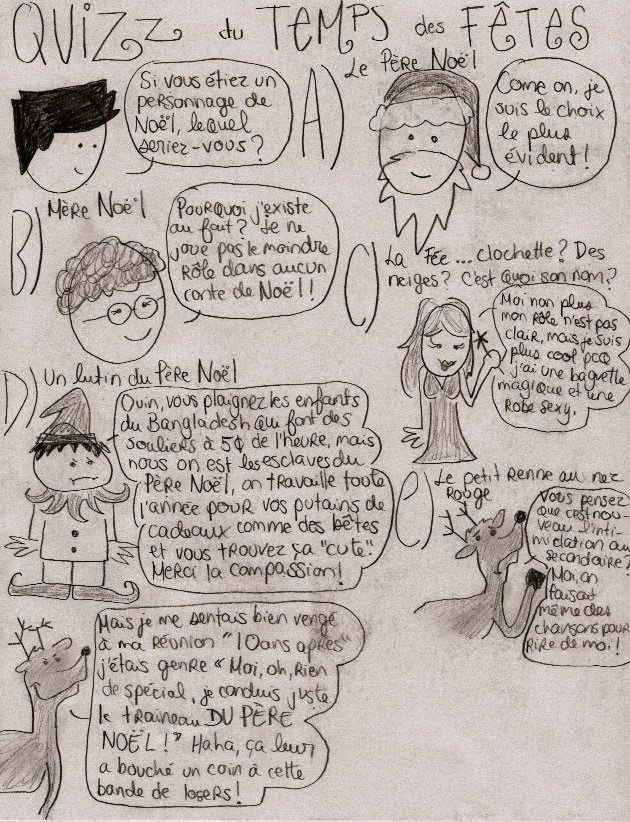 QUIZZ du TEMPS des FÊTES
Si vous étiez un
personnage de
Noël, lequel
seriez-vous?
A) Le Père Noël
Come on, je
suis le choix
le plus
évident!
B) Mère Noël
Pourquoi j'existe
au fait? Je ne
joue pas le moindre
rôle dans aucun
conte de Noël!
C) La Fée... clochette? Des
neiges? C'est quoi son nom?
Moi non plus
mon rôle n'est pas
clair, mais je suis
plus cool pcq
j'ai une baguette
magique et une
robe sexy.
D) Un lutin du Père Noël
Ouin, vous plaignez les enfants
du Bangladesh qui font des
souliers à 5¢ de l'heure, mais
nous on est les esclaves du
Père Noël, on travaille toute
l'année pour vos putains de
cadeaux comme des bêtes
et vous trouvez ça "cute".
Merci la compassion!
e) Le petit renne au nez
rouge
Vous pensez
que c'est nou-
veau l'inti-
midation au
secondaire?
Moi, on
faisait
même des
chansons pour
rire de moi!
Mais je me sentais bien vengé
à ma réunion "10 ans après"
j'étais genre « Moi, oh, rien
de spécial, je conduis juste
le traineau DU PÈRE
NOËL!" Haha, ça leur
a bouché un coin à cette
bande de losers!